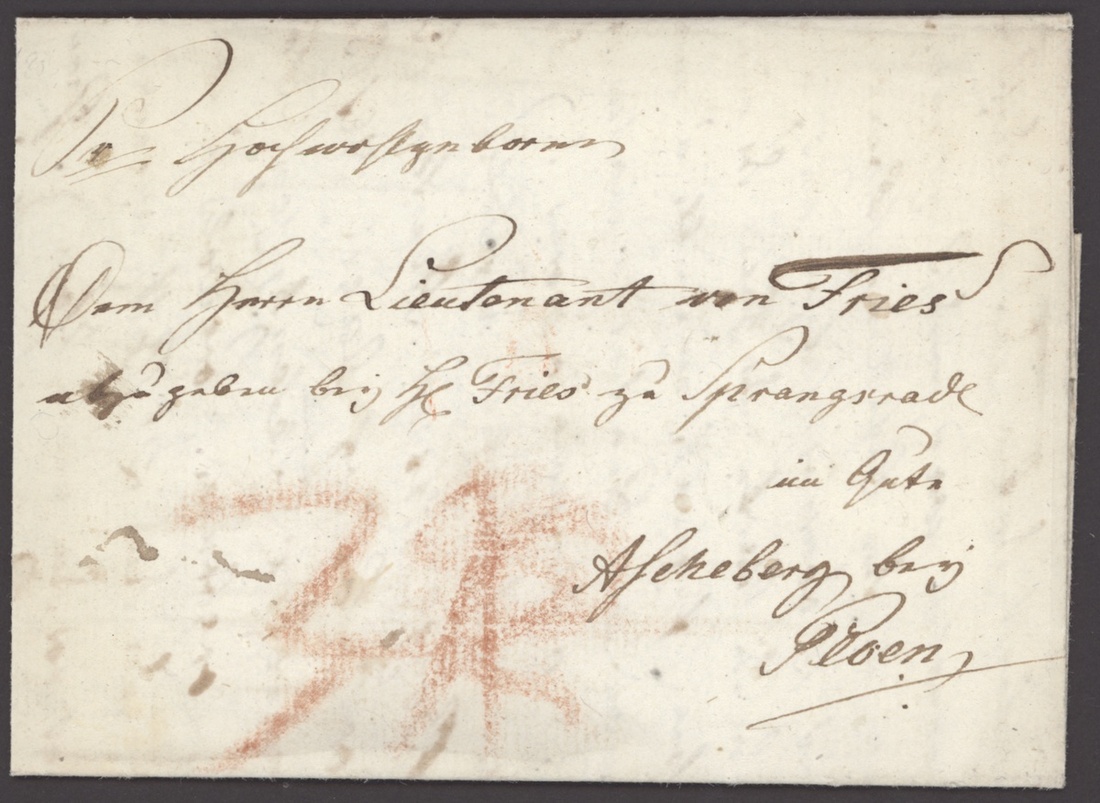 Sr Hochwohlgeboren
Dem Herrn Lieutenant von Fries
abzugeben bey H. Fries zu Sprangsrade
im Gute
Ascheberg bey
Ploen